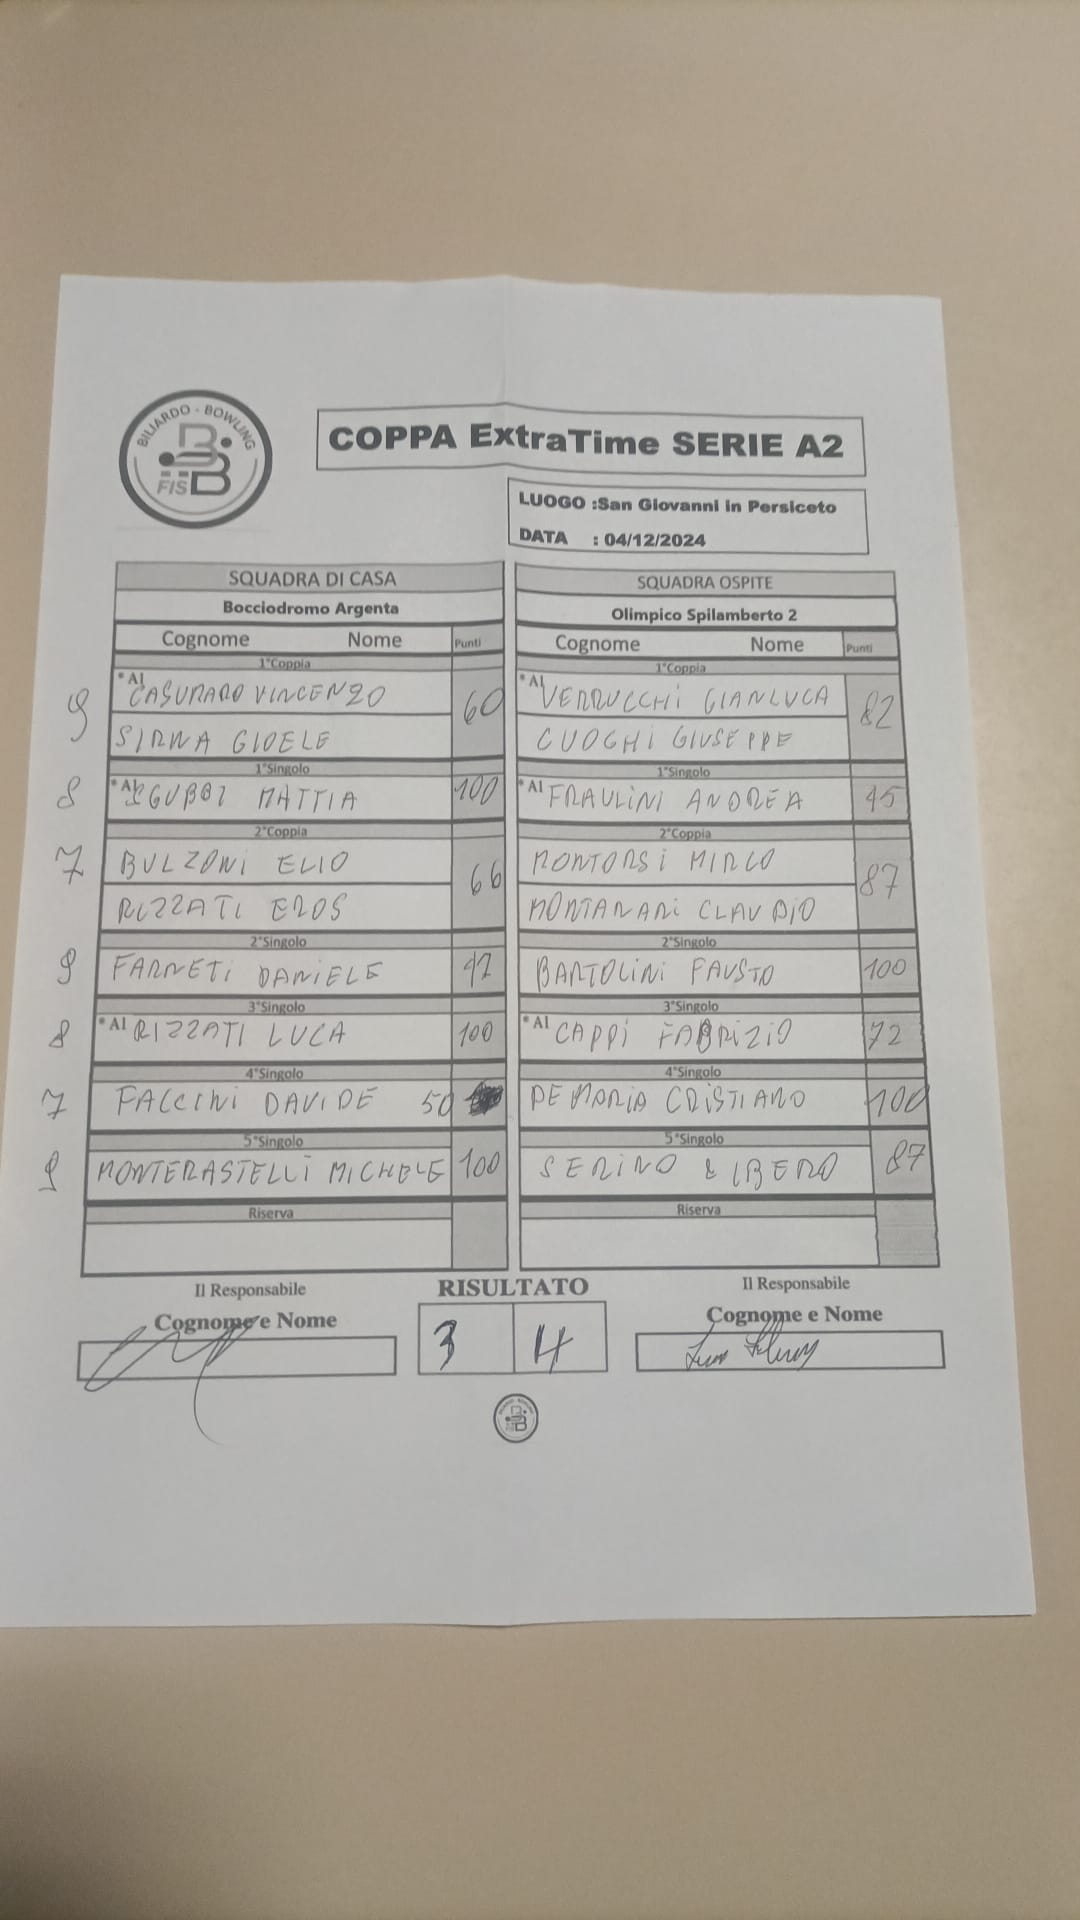 BILIARDO - BOWLING
FISBB
COPPA ExtraTime SERIE A2
LUOGO :San Giovanni in Persiceto
DATA : 04/12/2024
SQUADRA DI CASA SQUADRA OSPITE
Bocciodromo Argenta Olimpico Spilamberto 2
Cognome Nome Punti Cognome Nome Punti
1°Coppia 1°Coppia
9 *Al CASURARO VINCENZO 60 *Al VERRUCCHI GIANLUCA 82
SIRNA GIOELE CUOGHI GIUSEPPE
1°Singolo 1°Singolo
8 *Al SGUBBI MATTIA 100 *Al FRAULINI ANDREA 45
2°Coppia 2°Coppia
7 BULZONI ELIO 66 MONTORSI MIRCO 87
RIZZATI EROS MONTANARI CLAUDIO
2°Singolo 2°Singolo
9 FARNETI DANIELE 92 BARTOLINI FAUSTO 100
3°Singolo 3°Singolo
8 *Al RIZZATI LUCA 100 *Al CAPPI FABRIZIO 72
4°Singolo 4°Singolo
7 FACCINI DAVIDE 50 DE MARIA CRISTIANO 100
5°Singolo 5°Singolo
9 MONTERASTELLI MICHELE 100 SERINO LIBERO 87
Riserva Riserva
Il Responsabile RISULTATO Il Responsabile
Cognome e Nome 3 4 Cognome e Nome